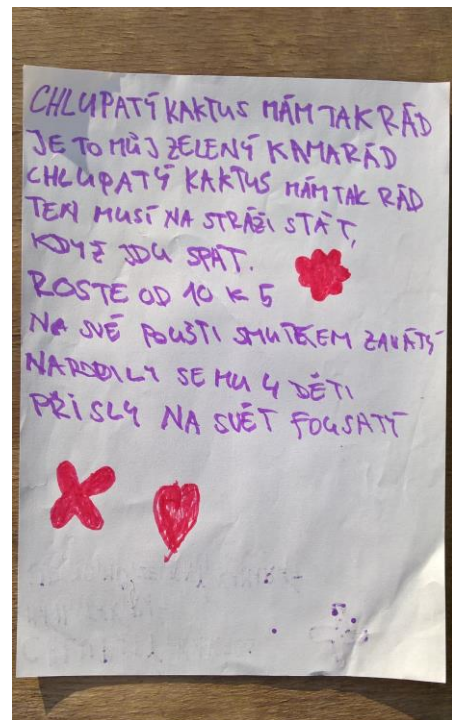 CHLUPATÝ KAKTUS MÁM TAK RÁD
JE TO MŮJ ZELENÝ KAMARÁD
CHLUPATÝ KAKTUS MÁM TAK RÁD
TEN MUSÍ NA STRÁŽI STÁT,
KDYŽ JDU SPÁT.
ROSTE OD 10 K 5
NA SVÉ POUŠTI SMUTKEM ZAVÁTÝ
NARODILY SE MU 4 DĚTI
PŘISLY NA SVĚT FOUSATÝ